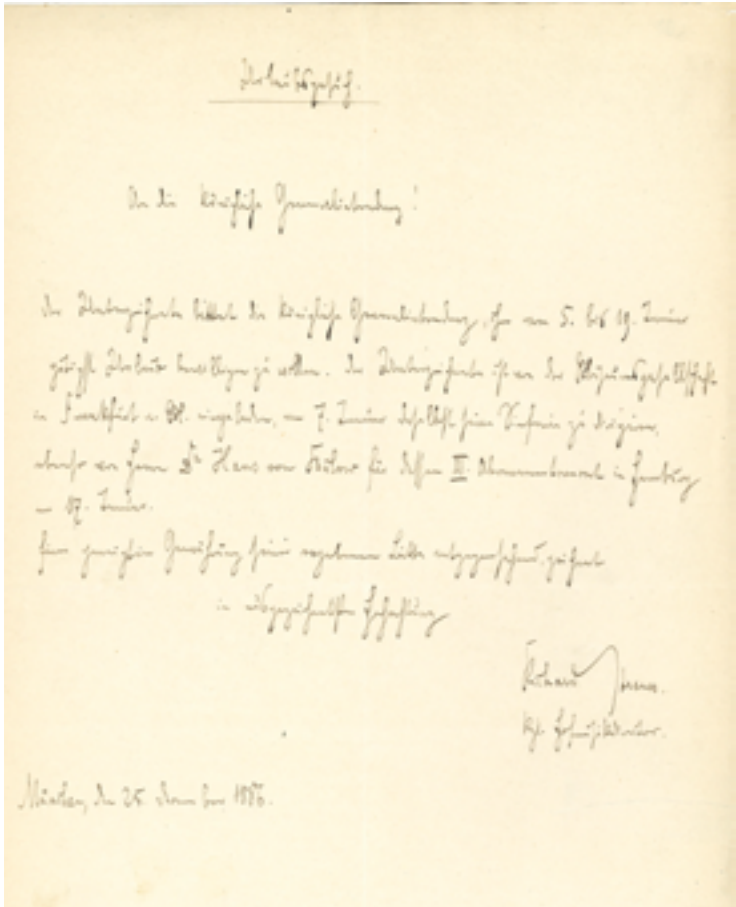 Urlaubsgesuch.
An die Königliche Generalintendanz!
Der Unterzeichnete bittet die Königliche Generalintendanz, ihm vom 5. bis 19. Januar
gütigst Urlaub bewilligen zu wollen. Der Unterzeichnete ist von der Museumsgesellschaft
in Frankfurt a M. eingeladen, am 7. Januar daselbst seine Sinfonie zu dirigieren,
ebenso von Herrn Dr Hans von Bülow für dessen III. Abonnementconcert in Hamburg
am 17. Januar.
Einer geneigten Gewährung seiner ergebenen Bitte entgegensehend, zeichnet
in ausgezeichnetster Hochachtung
Richard Strauss.
Kgl. Hofmusikdirector.
München, den 25. 1886.